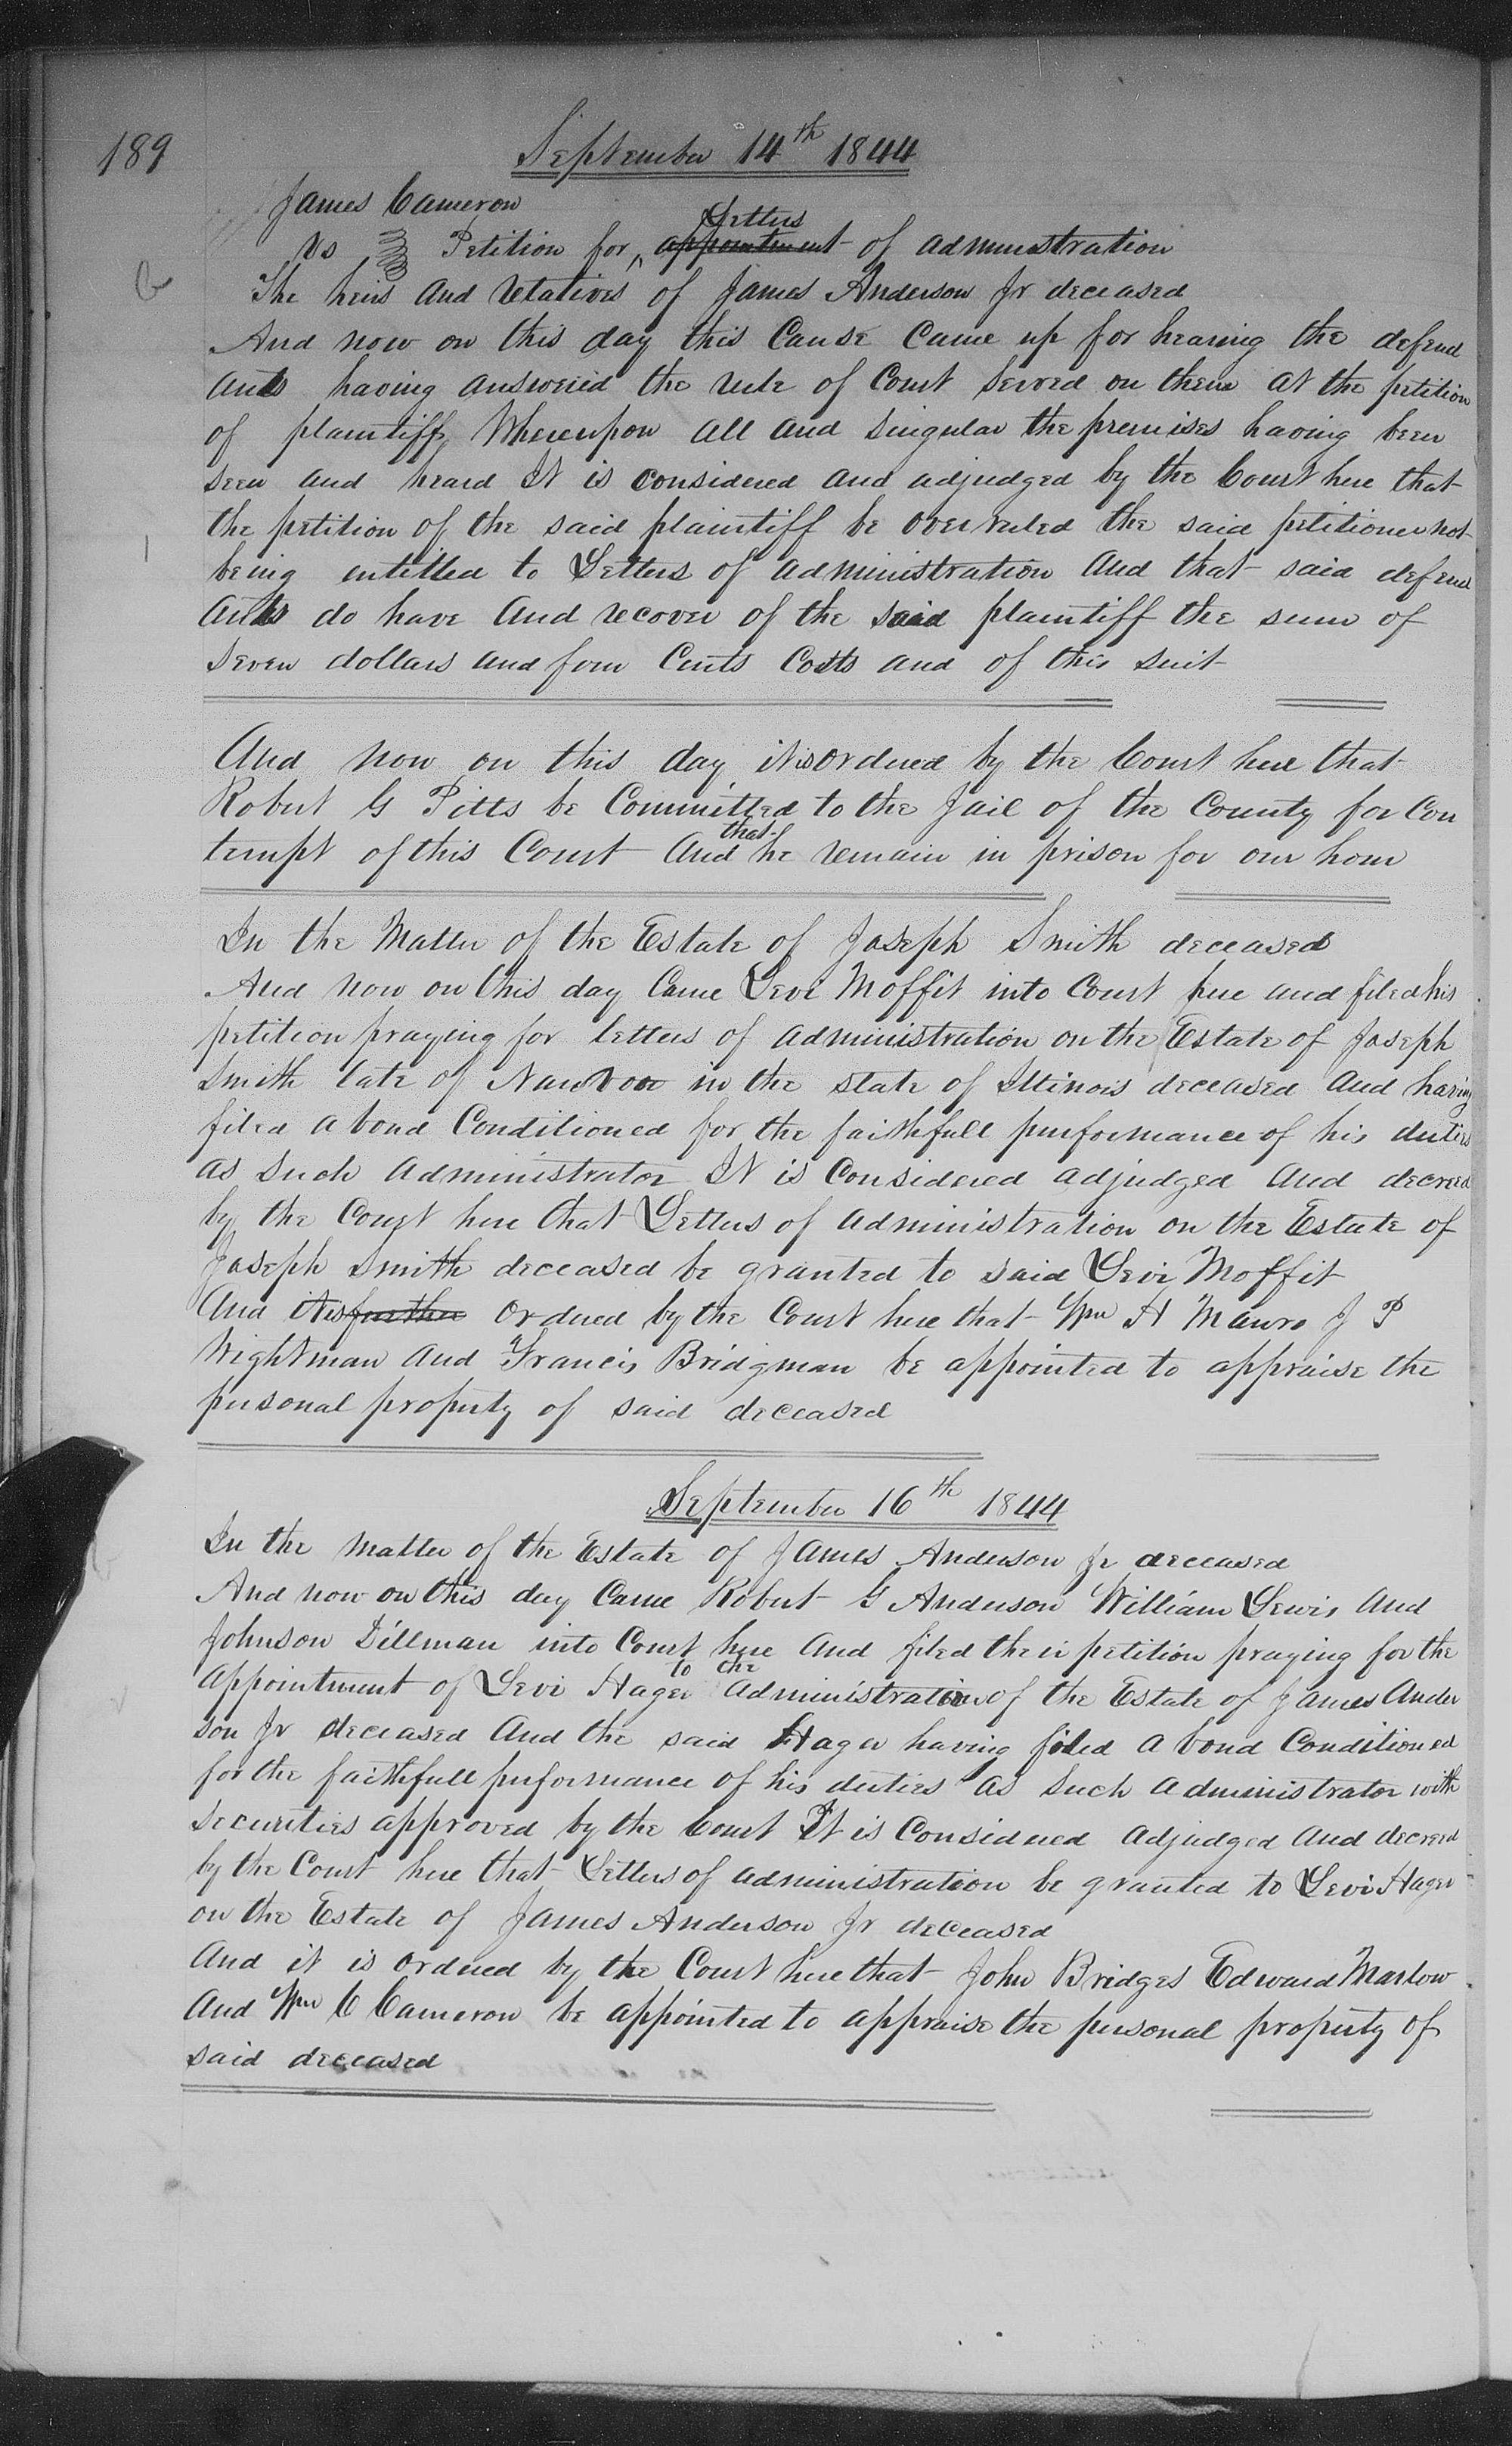 189
September 14th 1844
James Cameron
Vs Petition for Letters appointment of administration
The heirs and relatives of James Anderson Jr deceased
And now on this day this Cause Came up for hearing the defend
ants having answered the rule of Court served on them at the petition
of plaintiff, Whereupon all and singular the premises having been
seen and heard It is considered and adjudged by the Court here that
the petition of the said plaintiff be overruled the said petitioner not
being entitled to Letters of administration And that said defend
ants do have and recover of the said plaintiff the sum of
seven dollars and four Cents Costs and of this suit
And now on this day it is ordered by the Court here that
Robert G Pitts be Committed to the Jail of the County for Con
tempt of this Court and that he remain in prison for one hour
In the Matter of the Estate of Joseph Smith deceased
And now on this day Came Levi Moffit into Court here and filed his
petition praying for letters of administration on the Estate of Joseph
Smith late of Nauvoo in the state of Illinois deceased And having
filed a bond Conditioned for the faithfull performance of his duties
as such administrator It is Considered adjudged and decreed
by the Court here that Letters of administration on the Estate of
Joseph Smith deceased be granted to said Levi Moffit
And it is further Ordered by the Court here that Wm H Mauro J P
Wightman and Francis Bridgman be appointed to appraise the
personal property of said deceased
September 16th 1844
In the matter of the Estate of James Anderson Jr deceased
And now on this day Came Robert G Anderson William Lewis and
Johnson Dillman into Court here and filed their petition praying for the
appointment of Levi Hager to the Administration of the Estate of James Ander
son Jr deceased And the said Hager having filed a bond Conditioned
for the faithfull performance of his duties as such administrator with
securities approved by the Court It is Considered adjudged and decreed
by the Court here that Letters of administration be granted to Levi Hager
on the Estate of James Anderson Jr deceased
And it is ordered by the Court here that John Bridges Edward Marlow
and Wm C Cameron be appointed to appraise the personal property of
said deceased